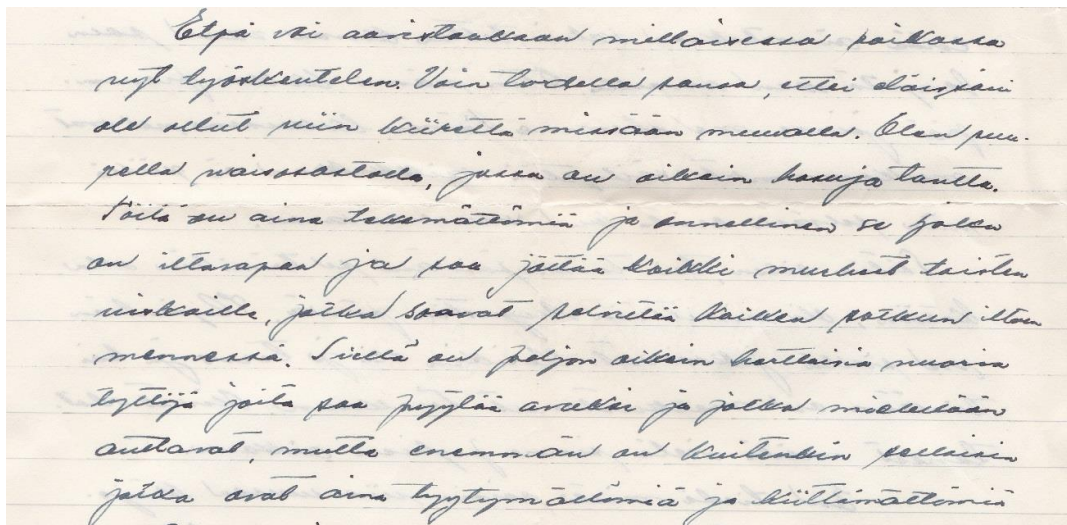 Etpä voi aavistaakaan millaisessa paikassa
nyt työskentelen. Voin todella sanoa, ettei eläissäni
ole ollut niin kiirettä missään muualla. Olen puo-
lella naisosastolla, jossa on oikein
Töitä on aina tekemättömiä ja onnellinen se jolla
on iltavapaa ja saa jättää kaikki murheet toisten
niskoille, jotka saavat selvittää kaiken sotkun iltaan
mennessä. Siellä on paljon oikein herttaisia nuoria
tyttöjä joita saa pyytää avuksi ja jotka mielellään
auttavat, mutta enemmän on kuitenkin sellaisia
jotka ovat aina tyytymättömiä ja kiittämättömiä